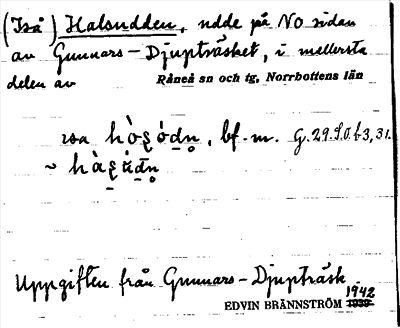 (Iså) Halsudden, udde på NO sidan
av Gunnars-Djupträsket, i mellersta
delen av Råneå sn och tg, Norrbottens län
bf. m. G.29.S.O.
~
Uppgiften från Gunnars-Djupträsk
1942
EDVIN BRÄNNSTRÖM 1939